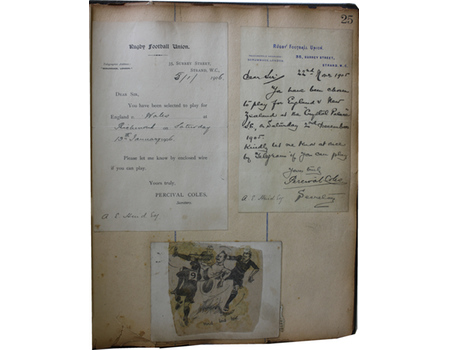 25
Rugby Football Union.
STRAND, W.C.,
5/1/ 1906
Dear Sir,
You have been selected to play for
England v. Wales
Richmond on Saturday
13th January
Please let me know by enclosed wire
if you can play.
Yours truly,
PERCIVAL COLES,
Rugby Football Union.
STRAND, W.C.
22nd Nov 1905
Dear Sir
You have been chosen
to play for England v New
Zealand at the Crystal Palace
on Saturday 2nd December
1905
Kindly let me know at once
by Telegram if you can play
Yours truly
Percival Coles
Secretary